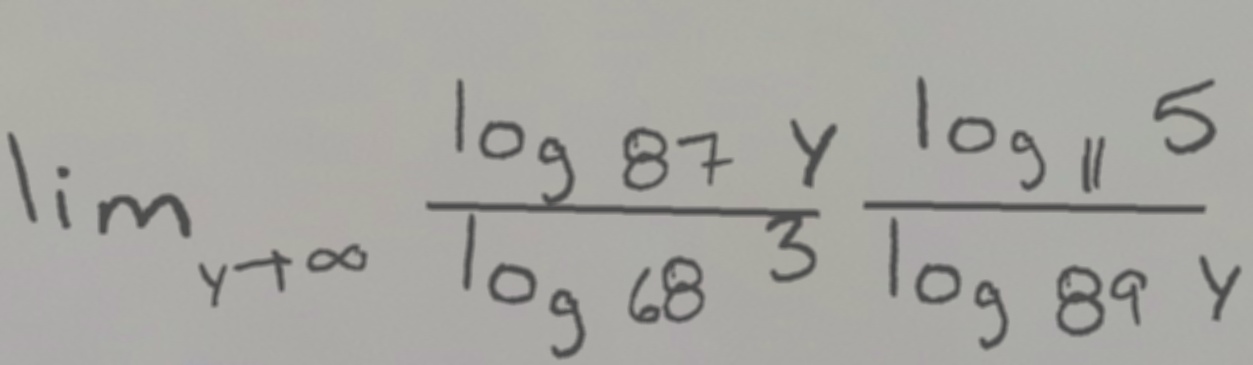 lim y→∞ \frac{log_{87} y}{log_{68} 3} \frac{log_{11} 5}{log_{89} y}